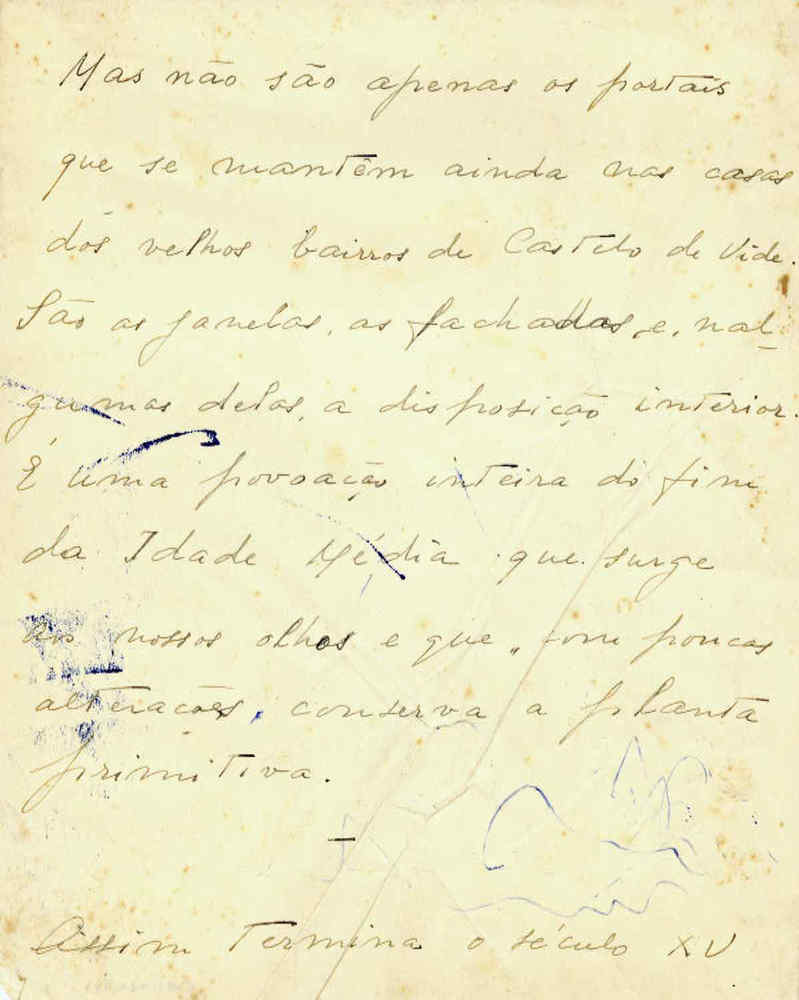 Mas não são apenas os portais
que se mantêm ainda nas casas
dos velhos bairros de Castelo de Vide.
São as janelas, as fachadas, e, nal-
gumas delas, a disposição interior.
É uma povoação inteira do fim
da Idade Média que surge
aos nossos olhos e que, com poucas
alterações, conserva a planta
primitiva.
—
Assim termina o século XV